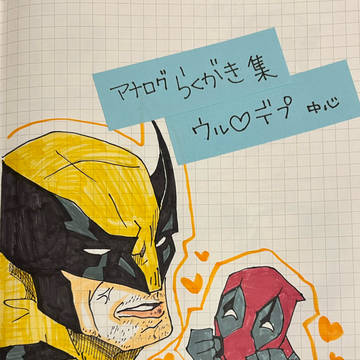 アナログらくがき集
ウル♡デプ 中心